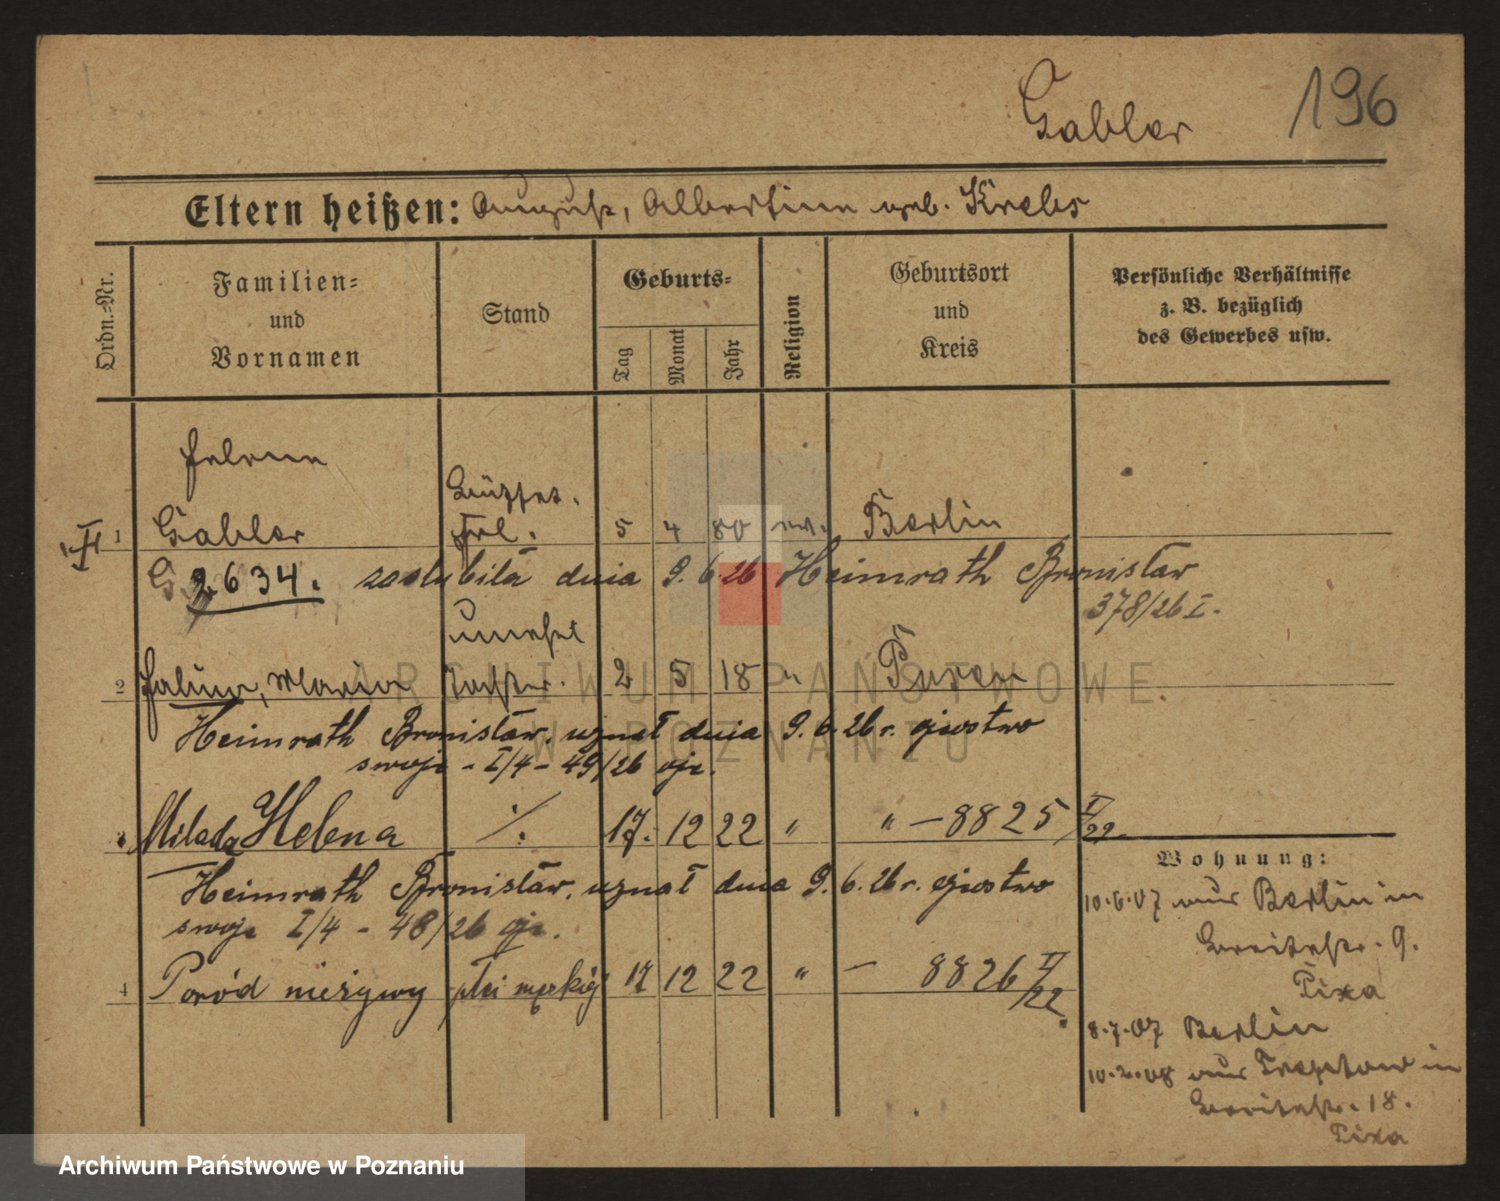 Gabler 196
Eltern heißen: August, Albertine geb. Krebs
Ordn.=Nr.
Familien=
und
Vornamen
Stand
Geburts=
Tag
Monat
Jahr
Religion
Geburtsort
und
Kreis
Persönliche Verhältnisse
z. B. bezüglich
des Gewerbes usw.
Helene
1 Gabler Frl. 5 4 80 ev. Berlin
G. 2634. zaślubiła dnia 9.6.26 Heimrath Bronisław
378/26 I.
unehel
2 Halina, Maria Tochter. 2 5 18 " Posen
Heimrath Bronisław. uznał dnia 9.6.26 r. ojcostwo
swoje - I/4 - 49/26 oje.
3 Milada Helena ./. 17. 12 22 " " - 8825 I/22.
Heimrath Bronisław. uznał dnia 9.6.26 r. ojcostwo
swoje I/4 - 48/26 oje.
4 Poród nieżywy płci męskiej 17 12 22 " - 8826 I/22.
Wohnung:
10.6.07 aus Berlin in
Breitestr. 9.
8.7.07 Berlin
10.2.08 aus Treptow in
Breitestr. 18.
ARCHIWUM PAŃSTWOWE
W POZNANIU
Archiwum Państwowe w Poznaniu